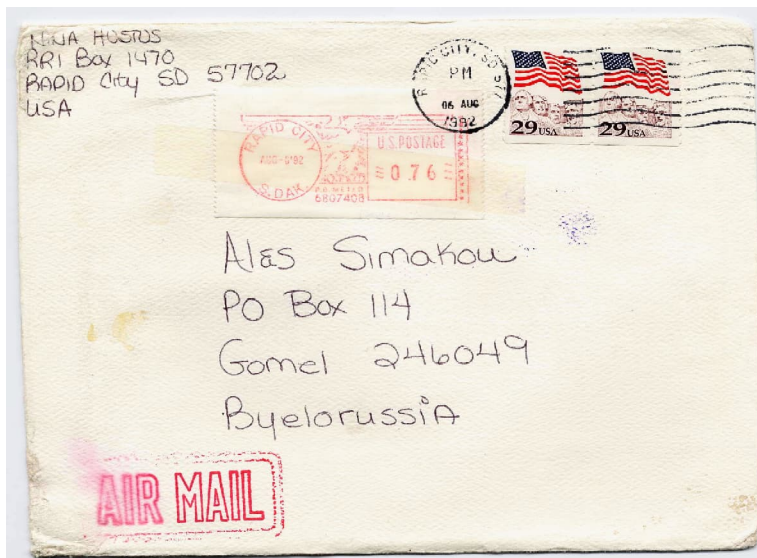 NINA HUSTUS
RR1 Box 1470
RAPID City SD 57702
USA
RAPID CITY, SD 577
PM
06 AUG
1992
29 USA
29 USA
RAPID CITY
AUG-6'92
S. DAK.
P.B. METER
6807408
U.S. POSTAGE
0.76
Ales Simakou
PO Box 114
Gomel 246049
ByelorussiA
AIR MAIL